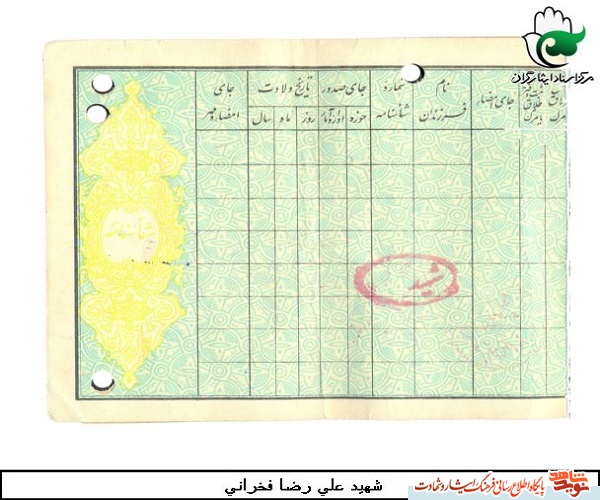 مرکز اسناد ایثارگران
نام
فرزندان
شماره
شناسنامه
جای صدور
حوزه
اداره آمار
تاریخ ولادت
روز
ماه
سال
جای
امضاء و مهر
جای امضاء
طلاق
یا مرگ
شناسنامه
شهید
شهيد علي رضا فخراني
نوید شاهد
پایگاه اطلاع رسانی فرهنگ ایثار و شهادت